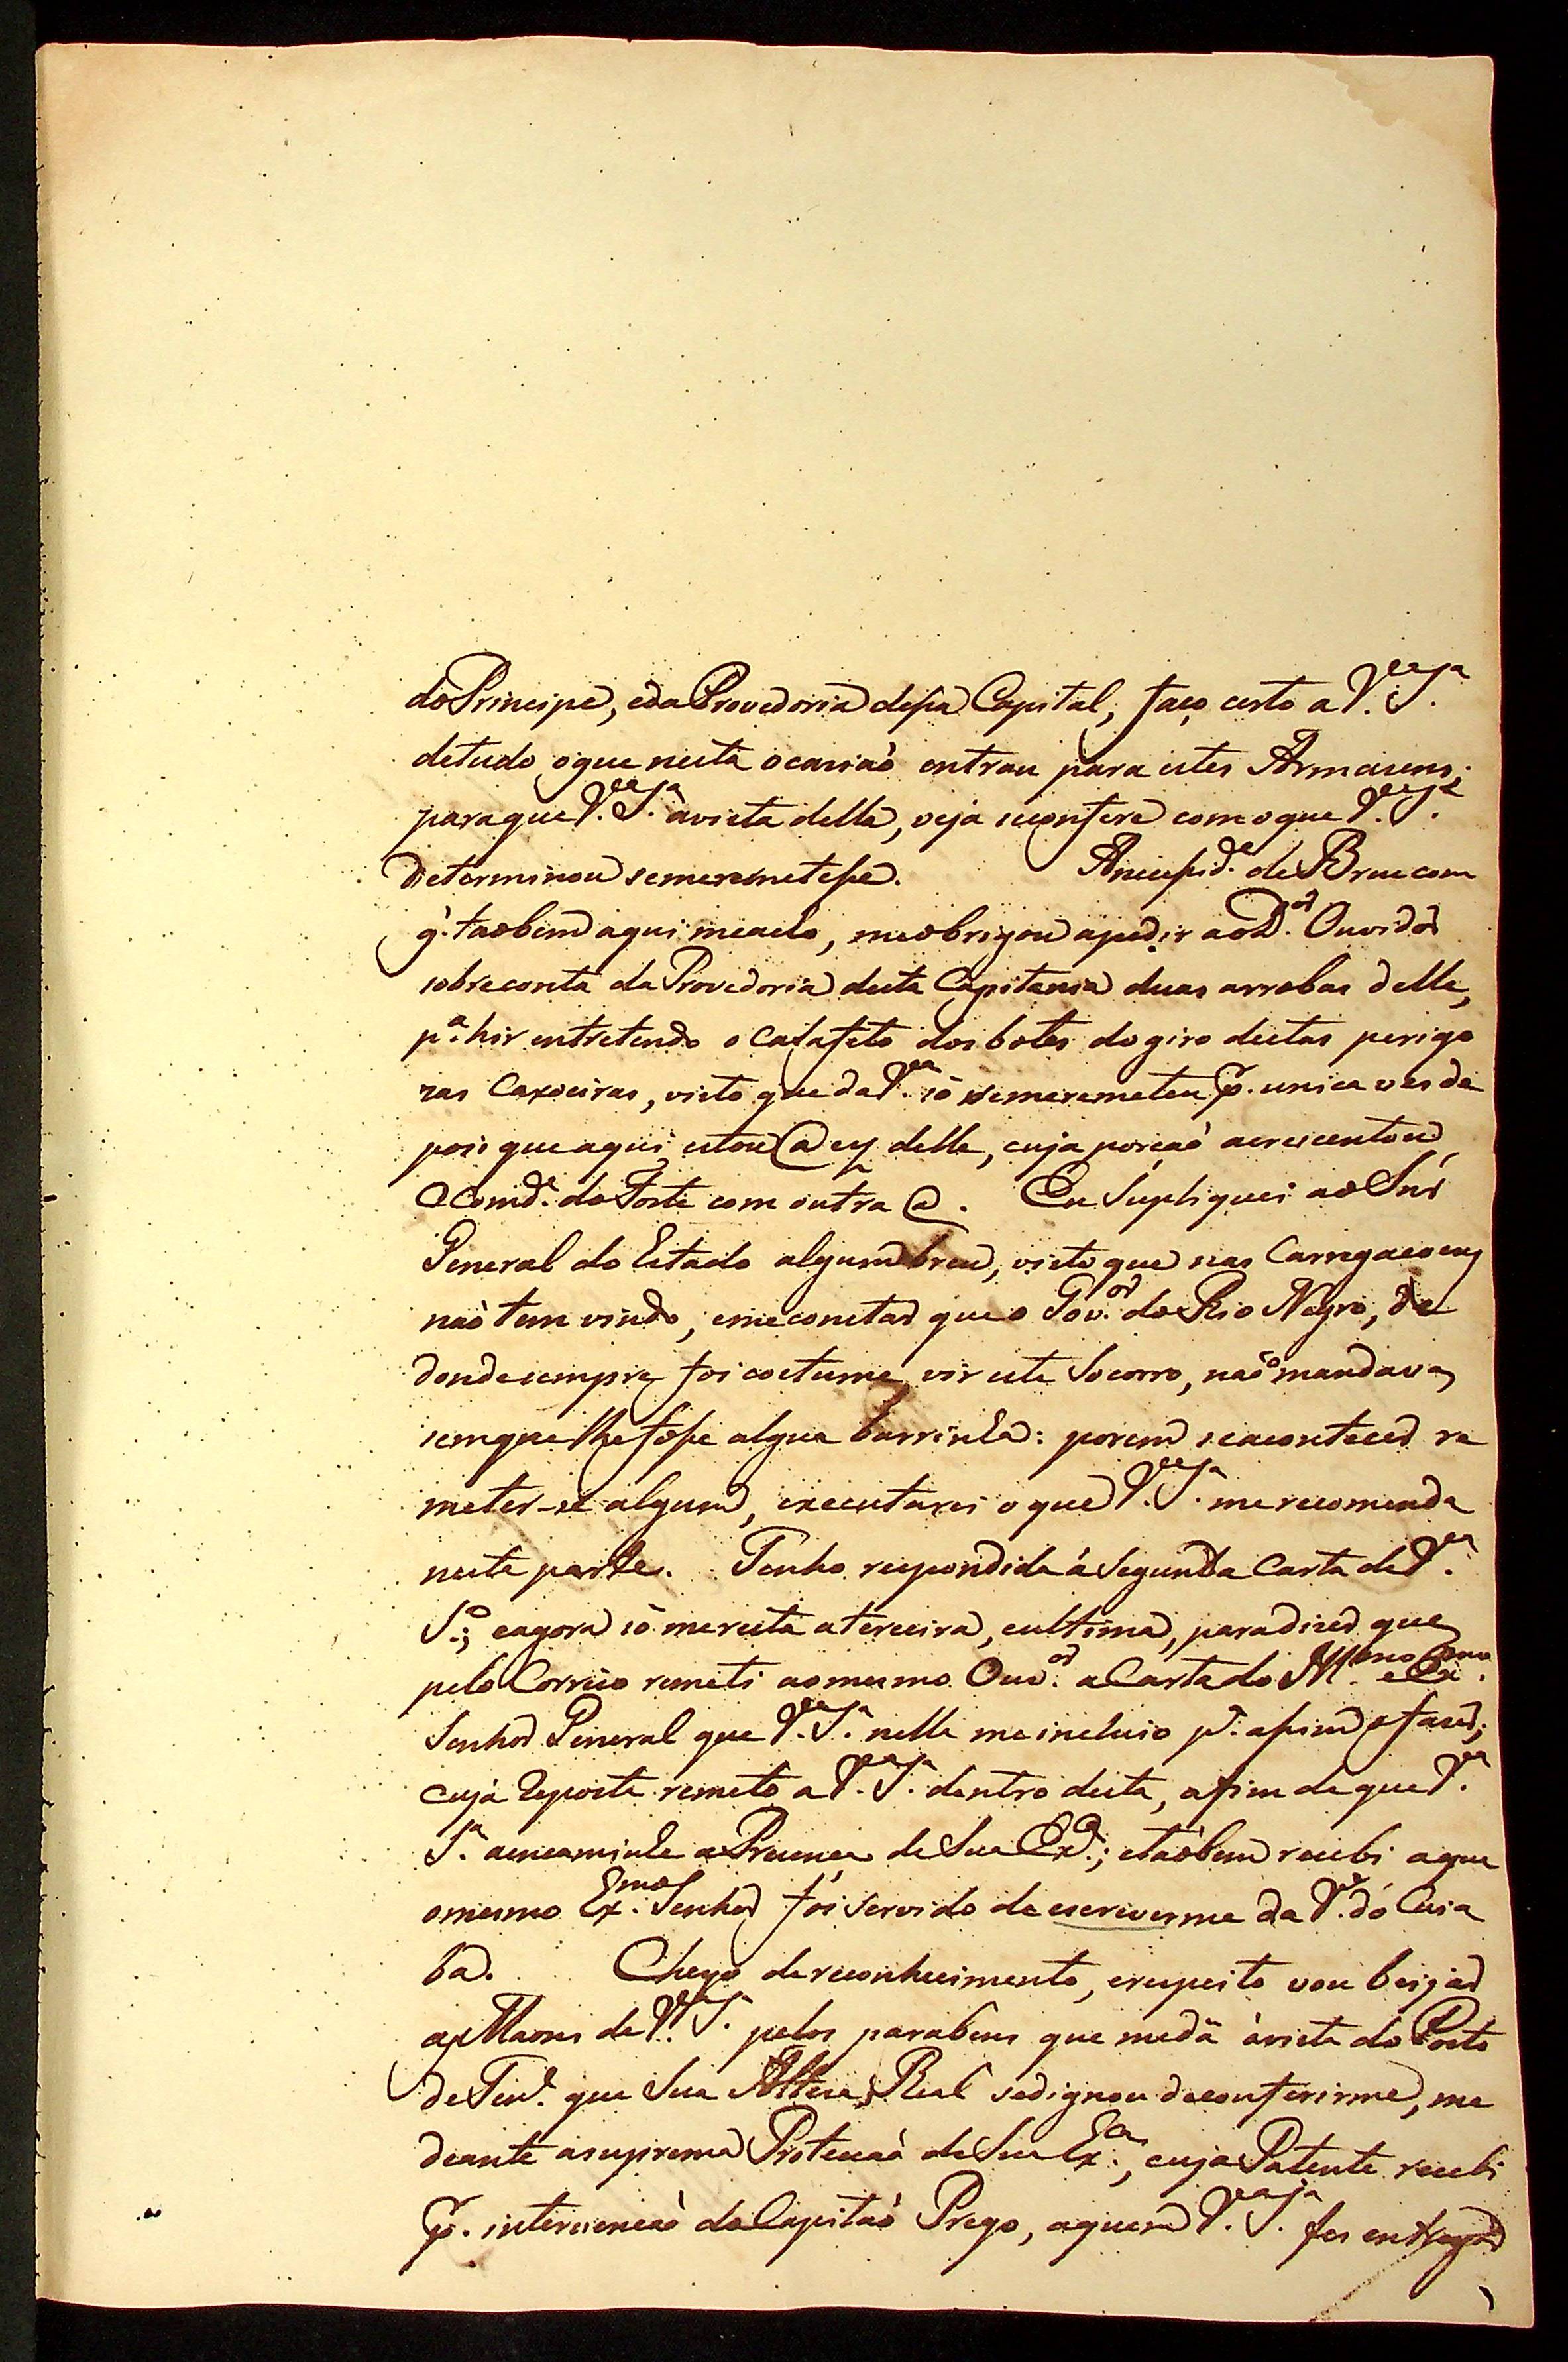 do Principe, eda Provedoria dessa Capital, faço certo a V.ª S.ª
detudo oque nesta ocasiaõ entrou para estes Armasens;
paraque V.ª S.ª avista della, veja seconfere com oque V.ª S.ª
determinou semeremetesse. Anecessid.e de Breu com
q̃. taobem aqui meacho, meobrigou apedir aoD.or Ouvidor
sobreconta da Provedoria desta Capitania duas arrobas delle,
p.ª hir entretendo o Calafeto dos botes do giro destas perigo
zas Caxoeiras, visto que da V.ª só semeremeteu p. unica ves de
pois que aqui estou @ delle, cuja porçaõ acrescentou
o Comd.e do Forte com outra @. Eu Supliquei ao Snr
General do Estado algum breu, visto que nas Carregaçoens
naõ tem vindo, emeconstar que o Gov.or do Rio Negro, de
donde sempre foi costume vir este Socorro, naõ mandava,
semque lhefosse algua barrinha: porem seacontecer re
meter-se algum, executarei o que V.ª S.ª merecomenda
nesta parte. Tenho respondido á Segunda Carta de V.ª
S.ª; eagora só meresta aterceira, eultima, paradizer que
pelo Correio remeti aomesmo Ouv.or a Carta do Ill.mo e Ex.mo
Senhor General que V.ª S.ª nella meincluio p.ª assim ofazer;
cuja Reposta remeto a V.ª S.ª dentro desta, afim de que V.ª
S.ª aencaminhe a Prezença de Sua Ex.ª; etaõbem recebi aque
omesmo Ex.mo Senhor foi Servido de escreverme da V.ª do Cuia
bá. Chego de reconhecimento, erespeito vou beijar
as Maons de V.ª S.ª pelos parabens que medá ávista do Posto
de Ten.e que Sua Alteza Real sedignou deconferirme, me
deante asuprema Proteçaõ de Sua Ex.ª, cuja Patente recebi
p. intervençaõ do Capitaõ Prego, aquem V.ª S.ª fes entregar